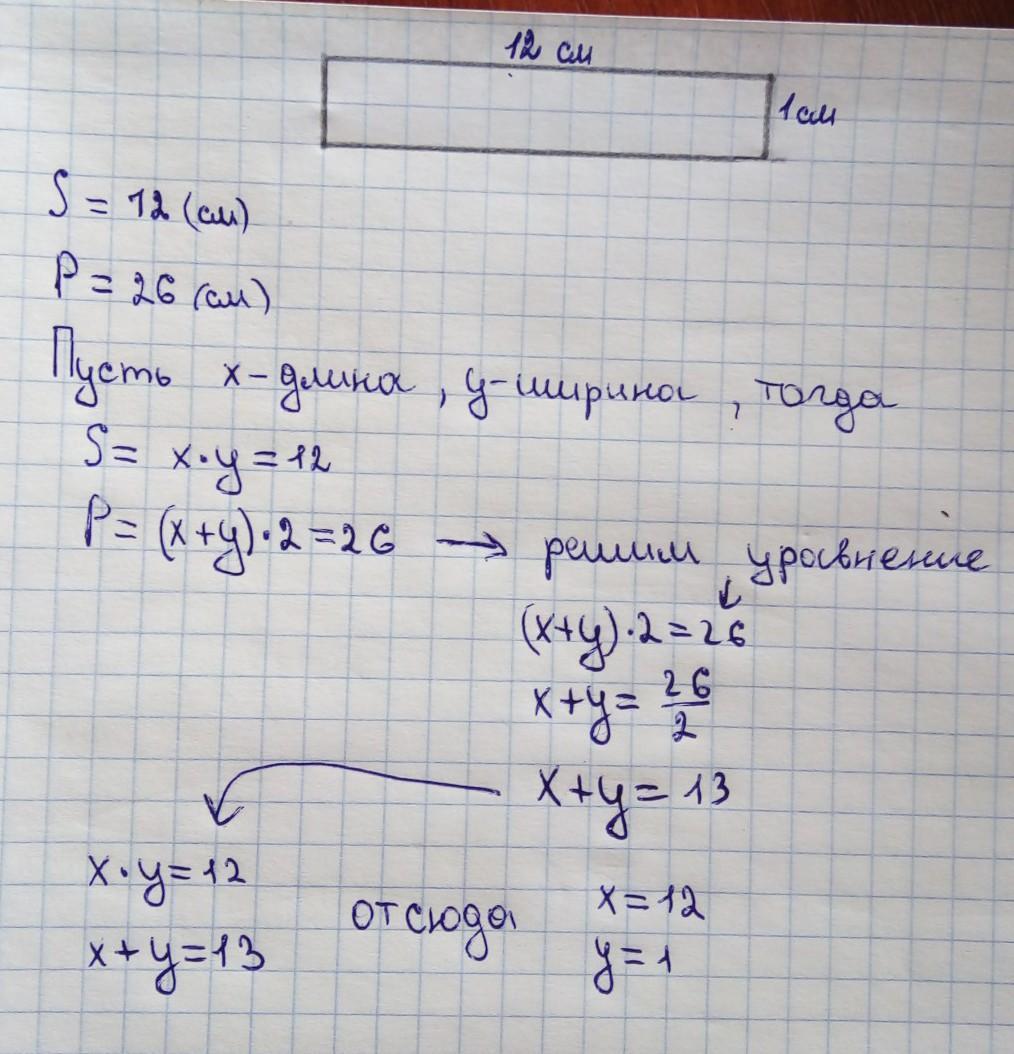 12 см
1 см
S = 12 (см)
P = 26 (см)
Пусть x-длина, y-ширина, тогда
S = x·y = 12
P = (x+y)·2 = 26 → решим уравнение
(x+y)·2 = 26
x+y = 26/2
x+y = 13
x·y = 12
x+y = 13
отсюда
x = 12
y = 1